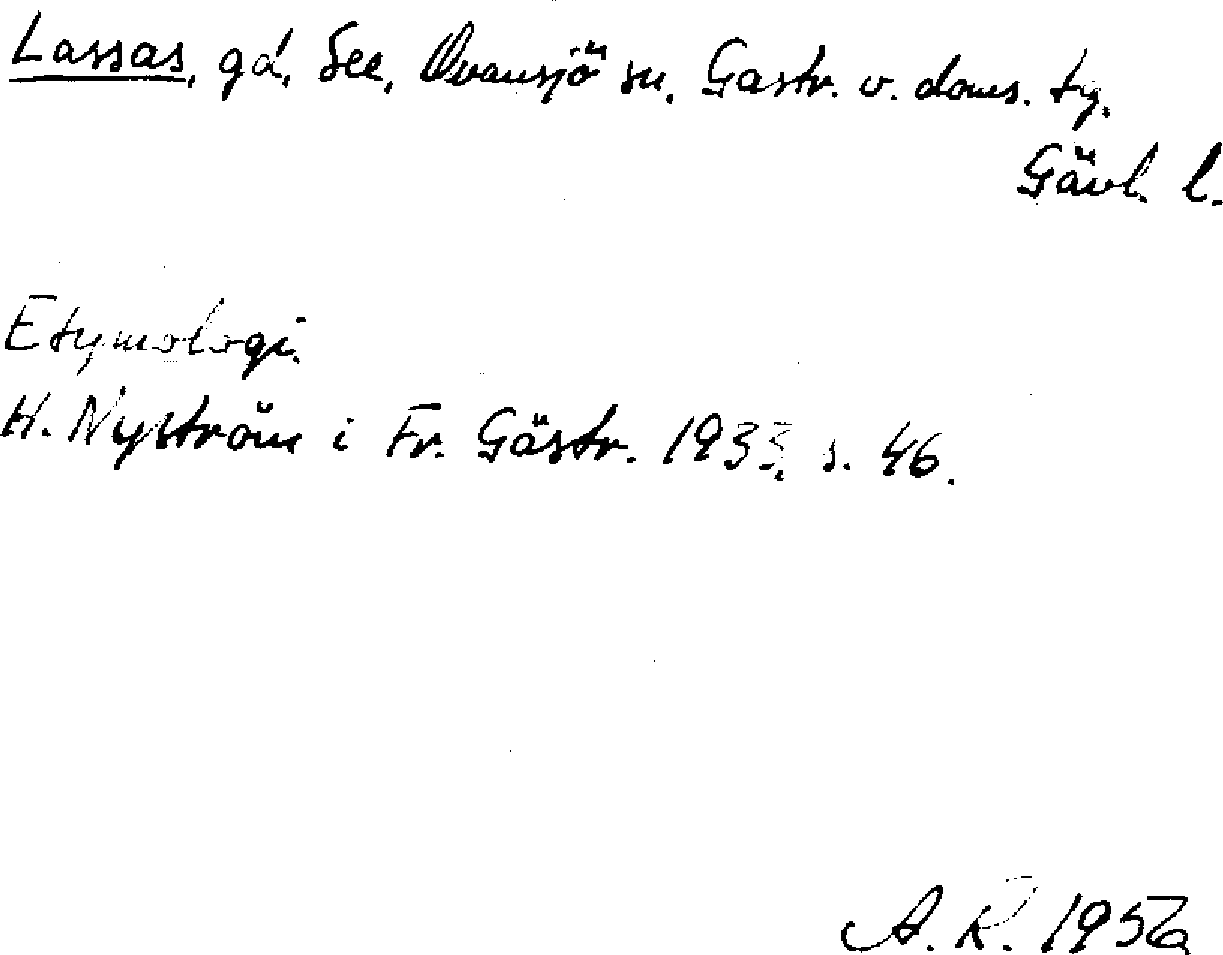 Lassas, gd, See, Ovansjö sn, Gästr. v. doms. tg.
Gävl. l.
Etymologi.
H. Nyström i Fr. Gästr. 1933, s. 46.
A. R. 1956